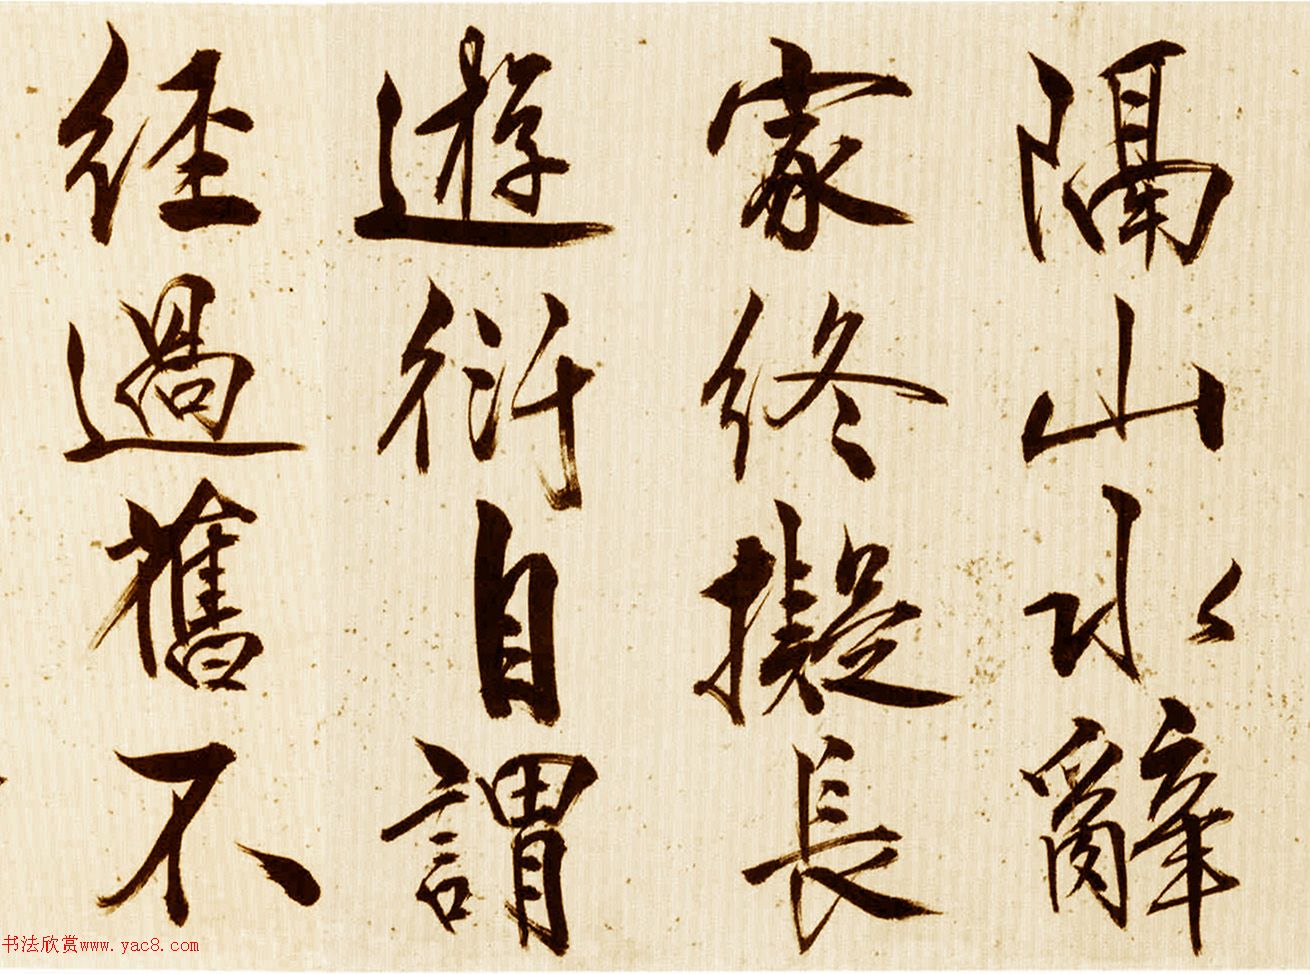 隔山水辭
家終擬長
遊衍自謂
經過舊不
书法欣赏www.yac8.com